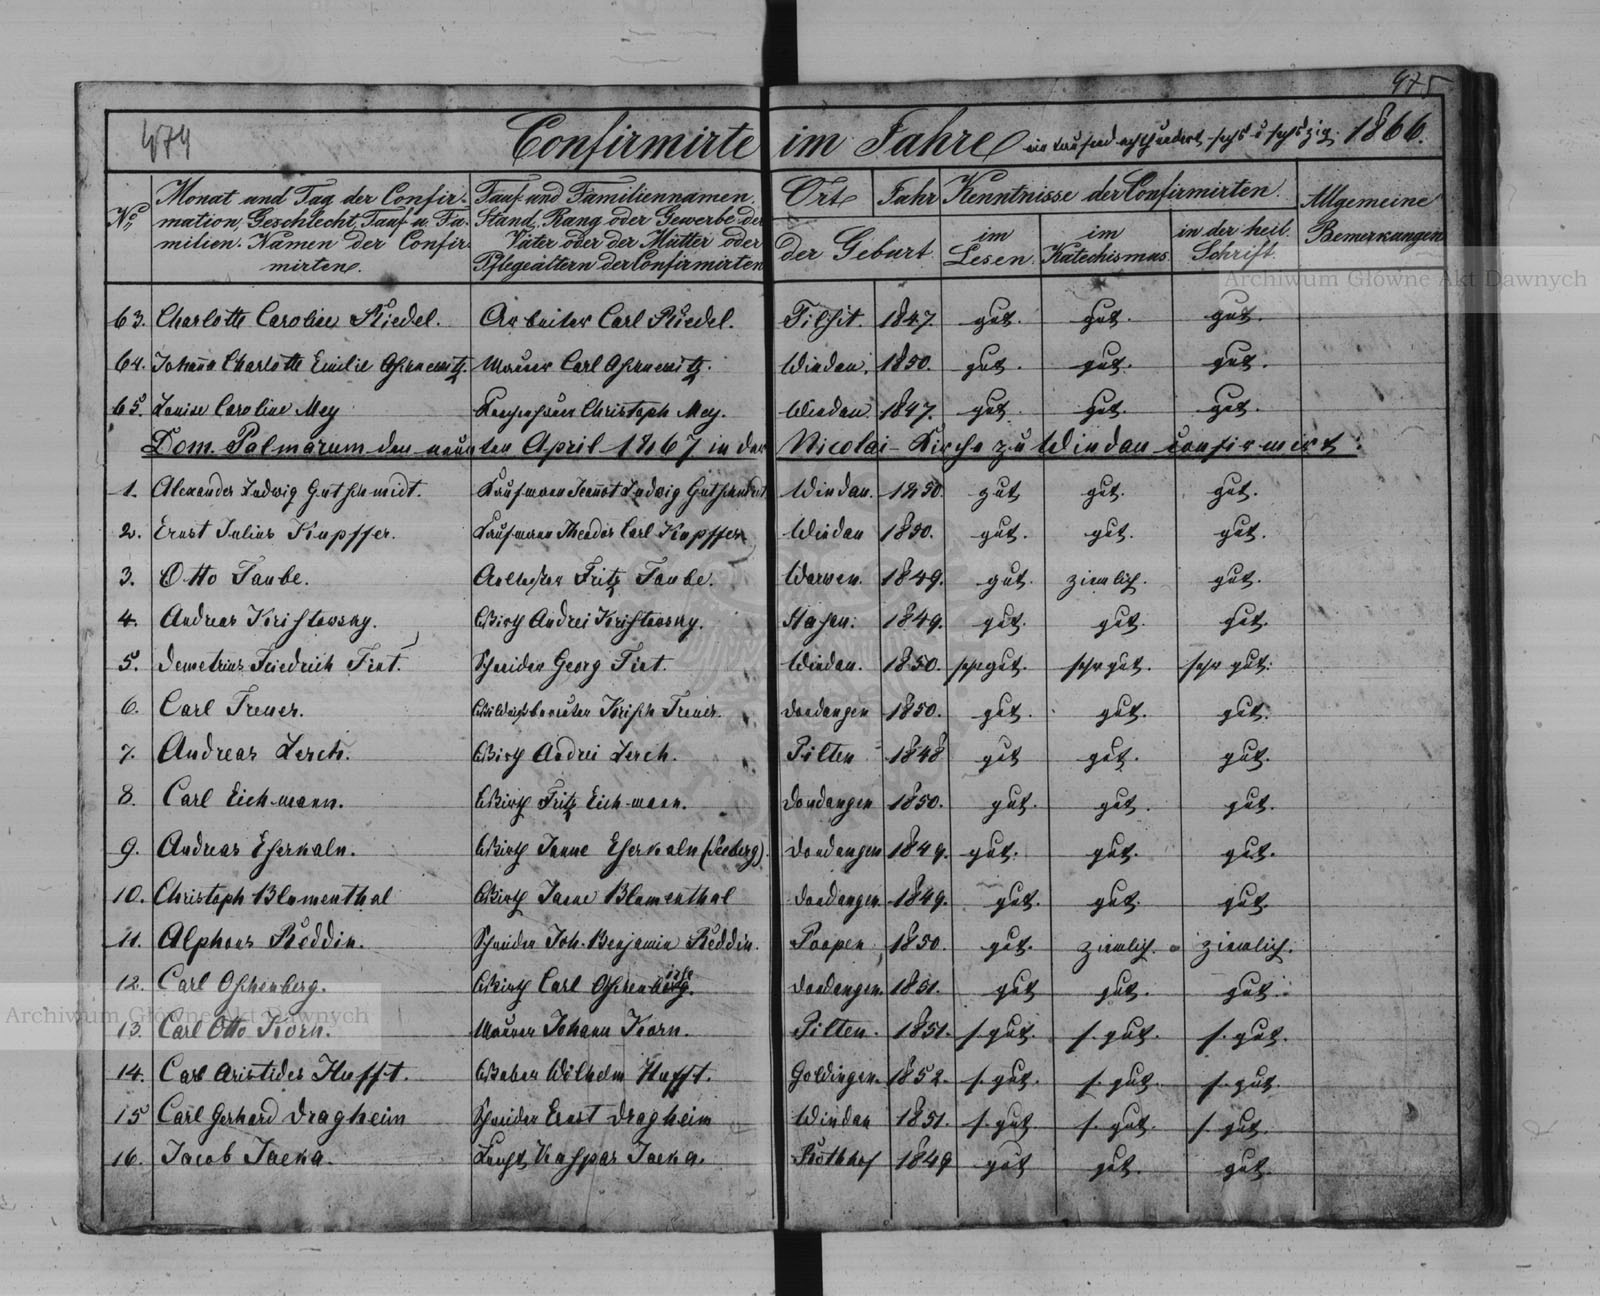 474
475
Confirmirte im Jahre ein tausend achthundert sechs u sechszig. 1866.
No
Monat und Tag der Confirmation, Geschlecht, Tauf u. Familien Namen der Confirmirten.
Tauf und Familiennamen, Stand, Rang oder Gewerbe der Väter oder der Mütter oder Pflegeältern der Confirmirten
Ort der Geburt
Jahr
Kenntnisse der Confirmirten.
im Lesen
im Katechismus
in der heil. Schrift.
Allgemeine Bemerkungen
63. Charlotte Caroline Riedel. Arbeiter Carl Riedel. Tilsit. 1847. gut. gut. gut.
64. Johanna Charlotte Emilie Maurer Carl Windau. 1850. gut. gut. gut.
65. Louise Caroline Mey Christoph Mey. Windau. 1847. gut. gut. gut.
Dom. Palmarum den neunten April 1867 in der Nicolai-Kirche zu Windau confirmirt:
1. Alexander Ludwig Gutschmidt. Kaufmann Jeannot Ludwig Gutschmidt Windau. 1850. gut gut. gut.
2. Ernst Julius Kupffer. Kaufmann Theodor Carl Kupffer Windau 1850. gut. gut. gut.
3. Otto Taube. Fritz Taube. Warwen. 1849. gut. ziemlich. gut.
4. Andreas Kristowsky. Wirth Andrei Kristowsky. Hasen. 1849. gut. gut. gut.
5. Demetrius Friedrich Tixt. Schneider Georg Tixt. Windau. 1850. sehr gut. sehr gut. sehr gut.
6. Carl Freuer. Krisch Freuer. Dondangen 1850. gut. gut. gut.
7. Andreas Lerch. Wirth Andrei Lerch. Pilten 1848 gut gut. gut.
8. Carl Eichmann. Wirth Fritz Eichmann. Dondangen 1850. gut. gut. gut.
9. Andreas Esserkaln. Wirth Janne Esserkaln (Seeberg). Dondangen 1849. gut. gut. gut.
10. Christoph Blumenthal Wirth Janne Blumenthal Dondangen 1849. gut. gut. gut
11. Alphons Reddin. Schneider Joh. Benjamin Reddin. Poopen 1850. gut. ziemlich. ziemlich.
12. Carl Oschenberg. Wirth Carl Oschenberg. Dondangen. 1851. gut gut. gut.
13. Carl Otto Korn. Maurer Johann Korn. Pilten. 1851. s. gut. s. gut. s. gut.
14. Carl Aristides Hufft. Weber Wilhelm Hufft. Goldingen. 1852. s. gut. s. gut. s. gut.
15 Carl Gerhard Dragheim Schneider Ernst Dragheim Windau 1851. s. gut s. gut. s. gut.
16. Jacob Jaeka. Knecht Kaspar Jaeka. Rothhof 1849 gut gut. gut.
Archiwum Główne Akt Dawnych
Archiwum Główne Akt Dawnych